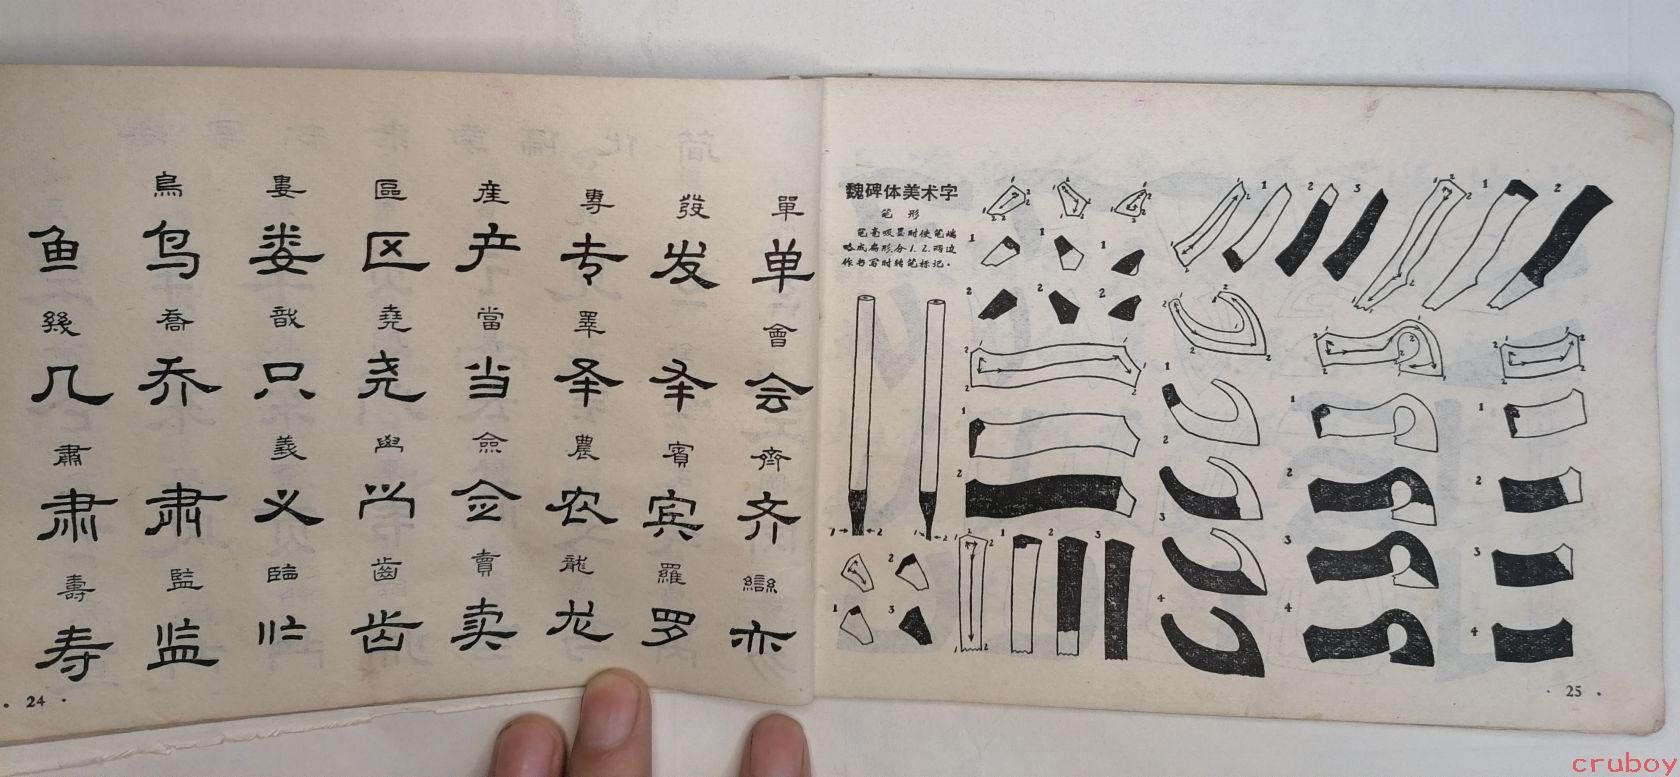 鳥 婁 區 産 專 發 單
鱼 鸟 娄 区 产 专 发 单
幾 喬 戠 堯 當 睪 會
几 乔 只 尧 当 会
肅 義 僉 農 賓 齊
肃 义 佥 农 宾 齐
壽 監 齒 賣 龍 羅 䜌
寿 监 齿 卖 龙 罗 亦
· 24 ·
魏碑体美术字
笔 形
笔毫吸墨时使笔端
略成扁形分1.2.两边
作书写时转笔标记.
· 25 ·
cruboy